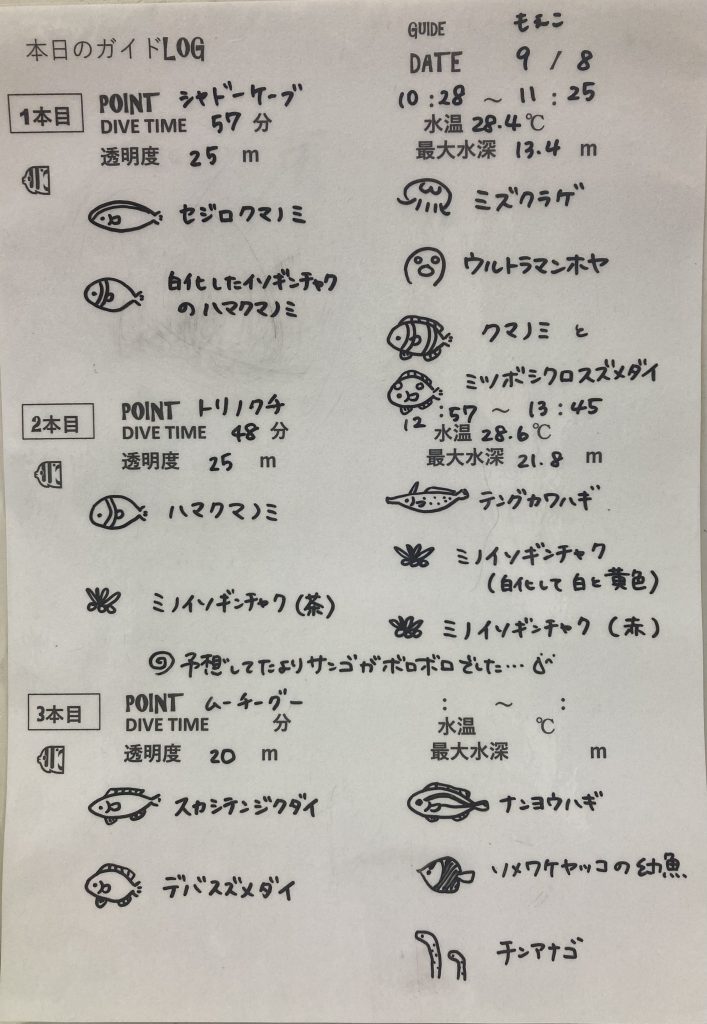 本日のガイドLOG
GUIDE もえこ
DATE 9 / 8
1本目
POINT シャドーケーブ
10:28 ～ 11:25
DIVE TIME 57 分
水温 28.4℃
透明度 25 m
最大水深 13.4 m
セジロクマノミ
ミズクラゲ
白化したイソギンチャク
のハマクマノミ
ウルトラマンホヤ
クマノミ と
ミツボシクロスズメダイ
2本目
POINT トリノクチ
12:57 ～ 13:45
DIVE TIME 48 分
水温 28.6℃
透明度 25 m
最大水深 21.8 m
ハマクマノミ
テングカワハギ
ミノイソギンチャク(茶)
ミノイソギンチャク
(白化して白と黄色)
ミノイソギンチャク(赤)
予想してたよりサンゴがボロボロでした…
3本目
POINT ムーチーグー
: ～ :
DIVE TIME 分
水温 ℃
透明度 20 m
最大水深 m
スカシテンジクダイ
ナンヨウハギ
デバスズメダイ
ソメワケヤッコの幼魚
チンアナゴ